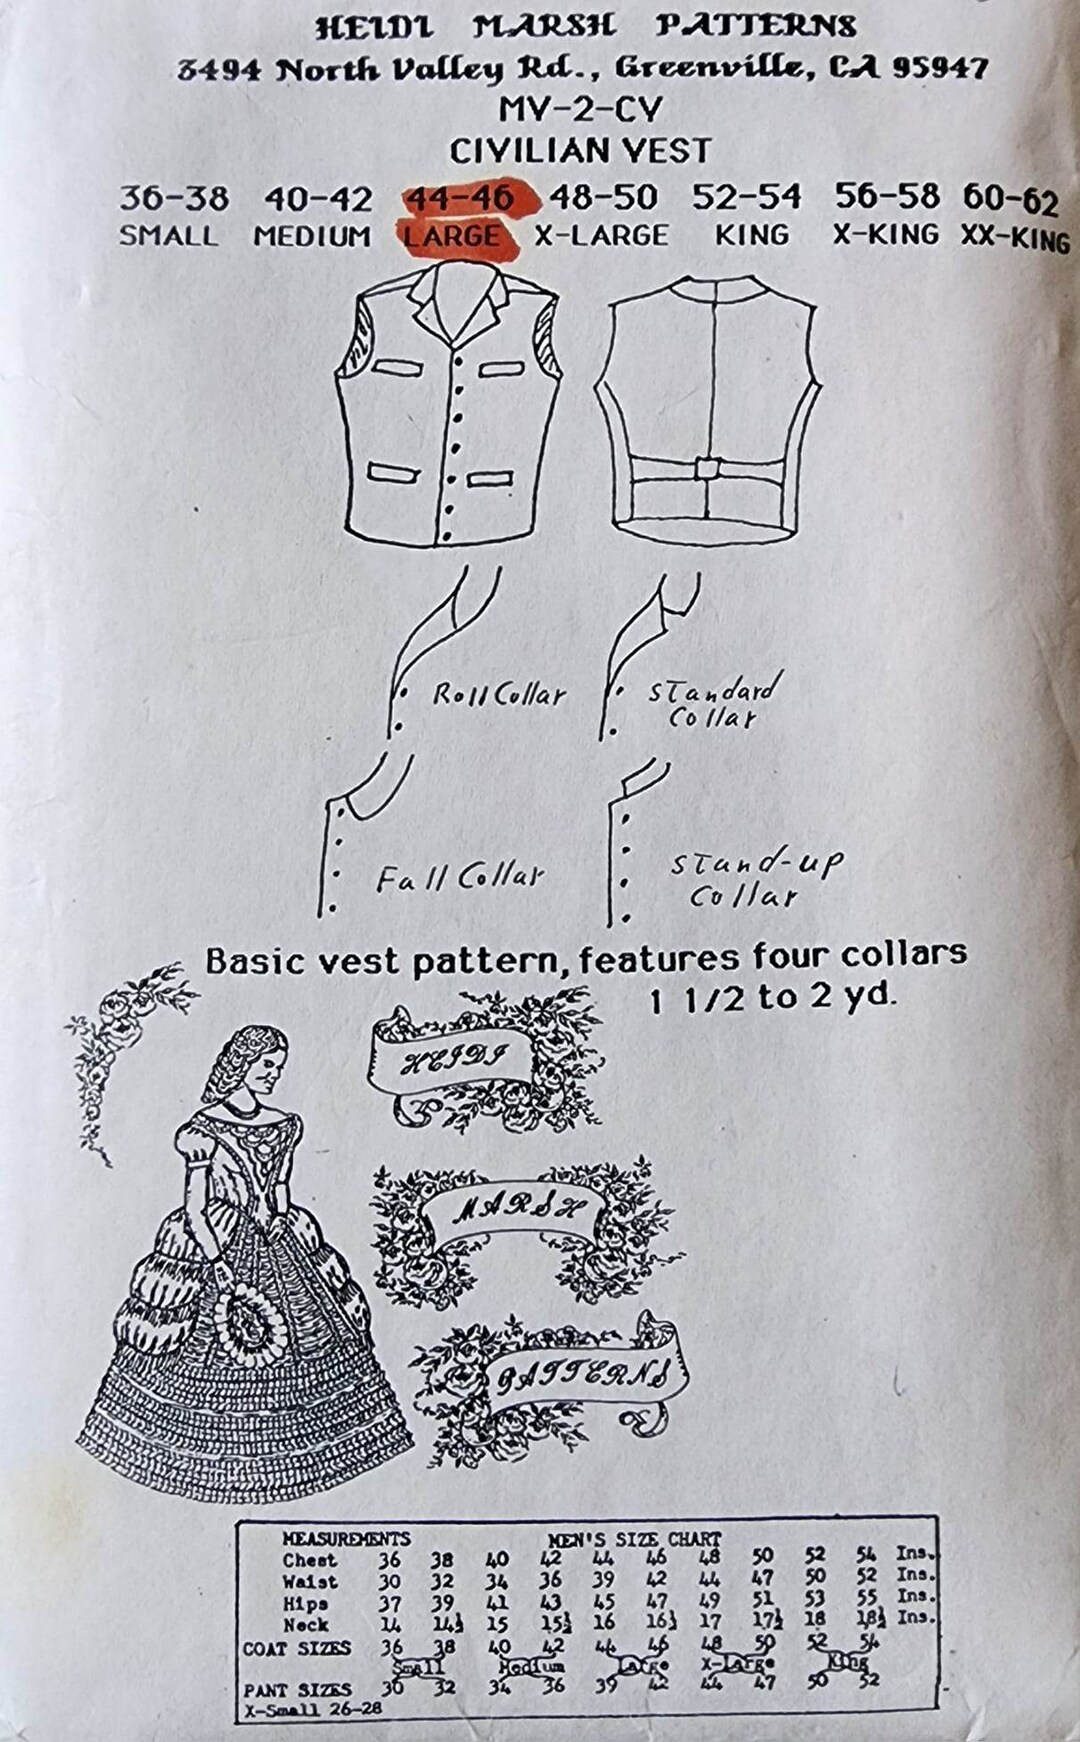 HEIDI MARSH PATTERNS
3494 North Valley Rd., Greenville, CA 95947
MV-2-CV
CIVILIAN VEST
36-38 40-42 44-46 48-50 52-54 56-58 60-62
SMALL MEDIUM LARGE X-LARGE KING X-KING XX-KING
Roll Collar
Standard
Collar
Fall Collar
Stand-up
Collar
Basic vest pattern, features four collars
1 1/2 to 2 yd.
HEIDI
MARSH
PATTERNS
MEASUREMENTS MEN'S SIZE CHART
Chest 36 38 40 42 44 46 48 50 52 54 Ins.
Waist 30 32 34 36 39 42 44 47 50 52 Ins.
Hips 37 39 41 43 45 47 49 51 53 55 Ins.
Neck 14 14½ 15 15½ 16 16½ 17 17½ 18 18½ Ins.
COAT SIZES 36 38 40 42 44 46 48 50 52 54
Small Medium Large X-Large King
PANT SIZES 30 32 34 36 39 42 44 47 50 52
X-Small 26-28